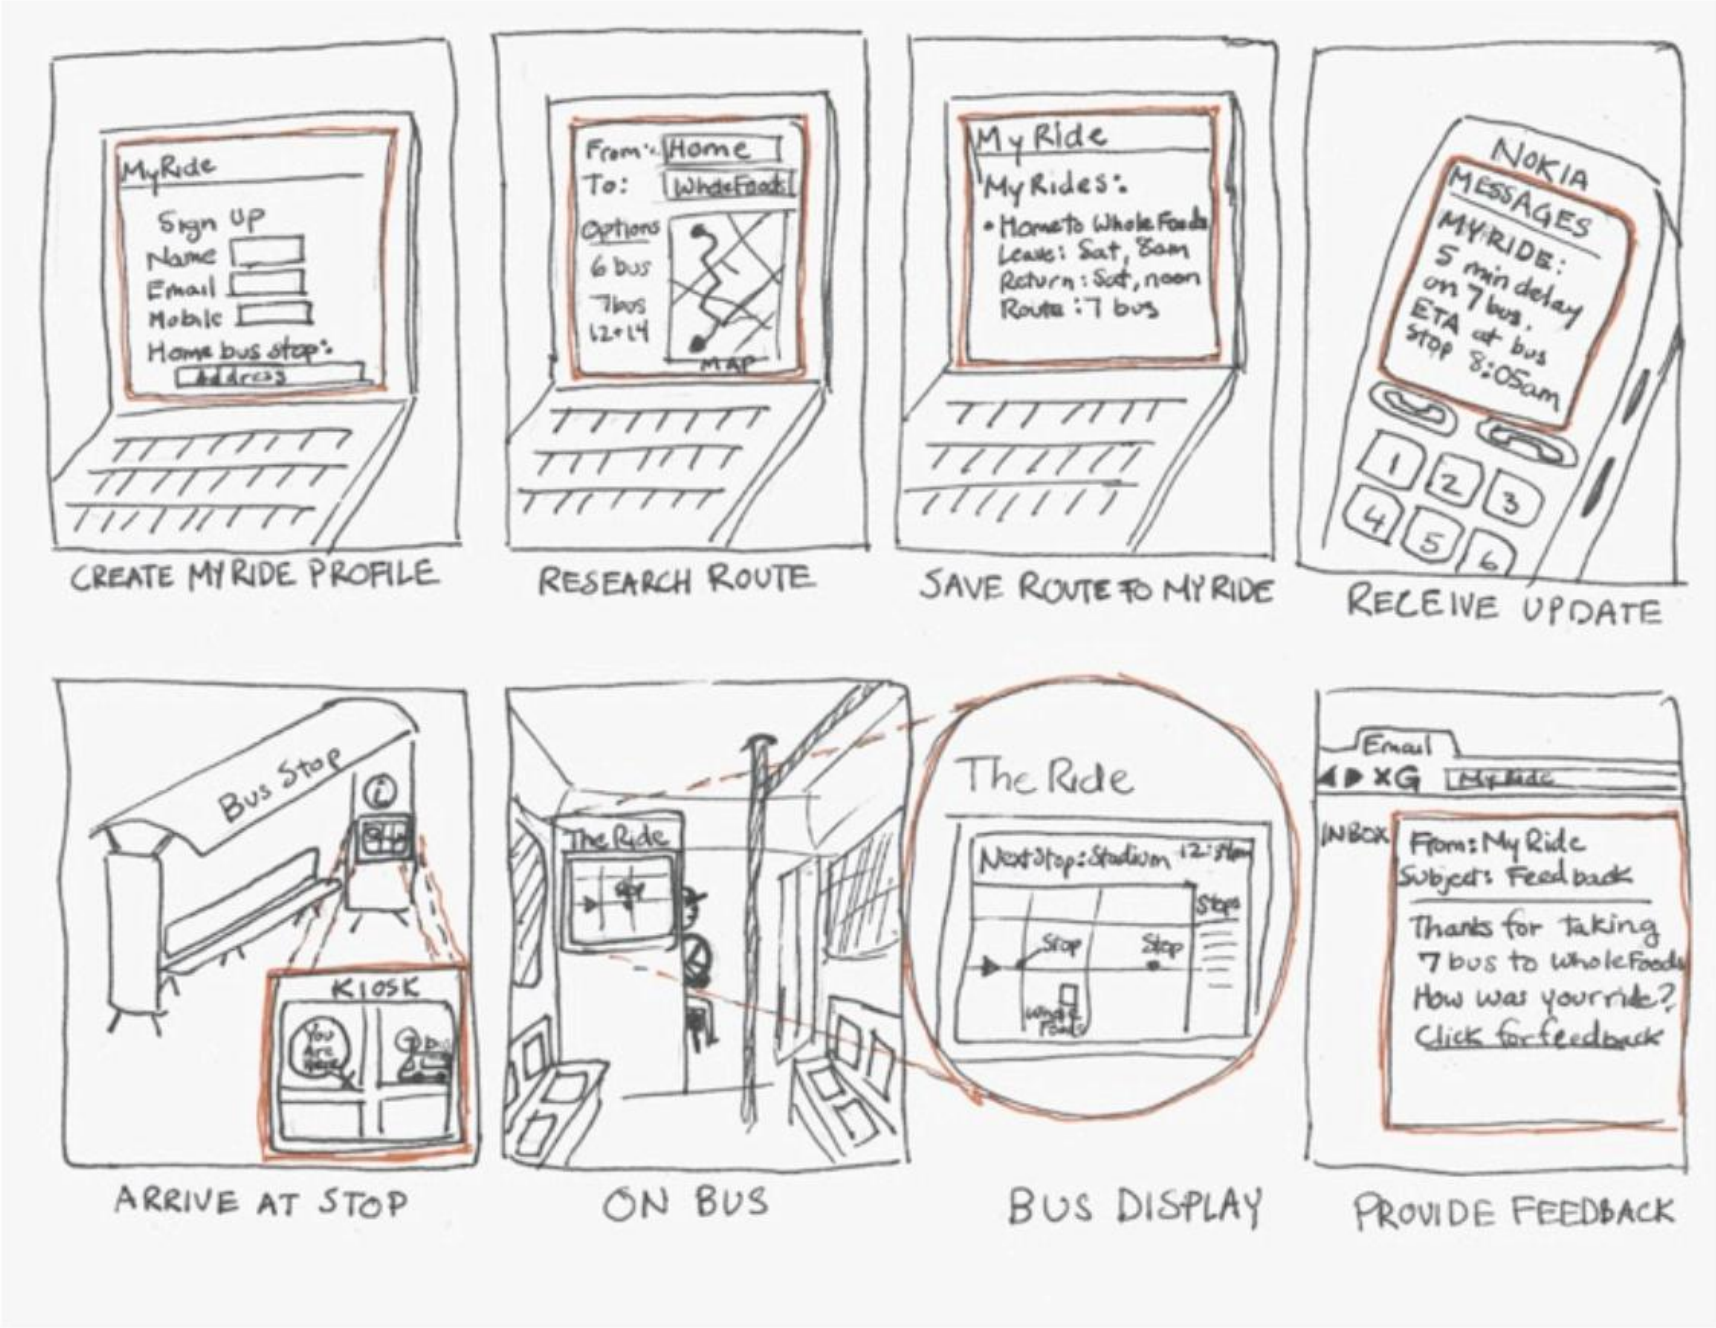 MyRide
Sign Up
Name
Email
Mobile
Home bus stop:
Address
CREATE MYRIDE PROFILE
From: Home
To: Whole Foods
Options
6 bus
7 bus
12+14
MAP
RESEARCH ROUTE
My Ride
My Rides:
• Home to Whole Foods
Leave: Sat, 8am
Return: Sat, noon
Route: 7 bus
SAVE ROUTE TO MYRIDE
NOKIA
MESSAGES
MYRIDE:
5 min delay
on 7 bus.
ETA at bus
stop 8:05am
1 2 3
4 5 6
RECEIVE UPDATE
Bus Stop
i
KIOSK
You
Are
Here
ARRIVE AT STOP
The Ride
Stop
ON BUS
The Ride
Next Stop: Stadium
Stops
Stop Stop
Whole
Foods
BUS DISPLAY
Email
X G My Ride
INBOX
From: My Ride
Subject: Feedback
Thanks for taking
7 bus to Whole Foods
How was your ride?
Click for feedback
PROVIDE FEEDBACK